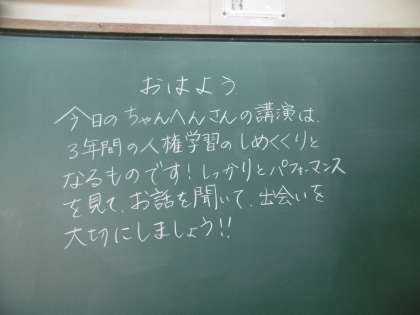 おはよう
今日のちゃんへんさんの講演は、
3年間の人権学習のしめくくりと
なるものです!しっかりとパフォーマンス
を見て、お話を聞いて、出会いを
大切にしましょう!!